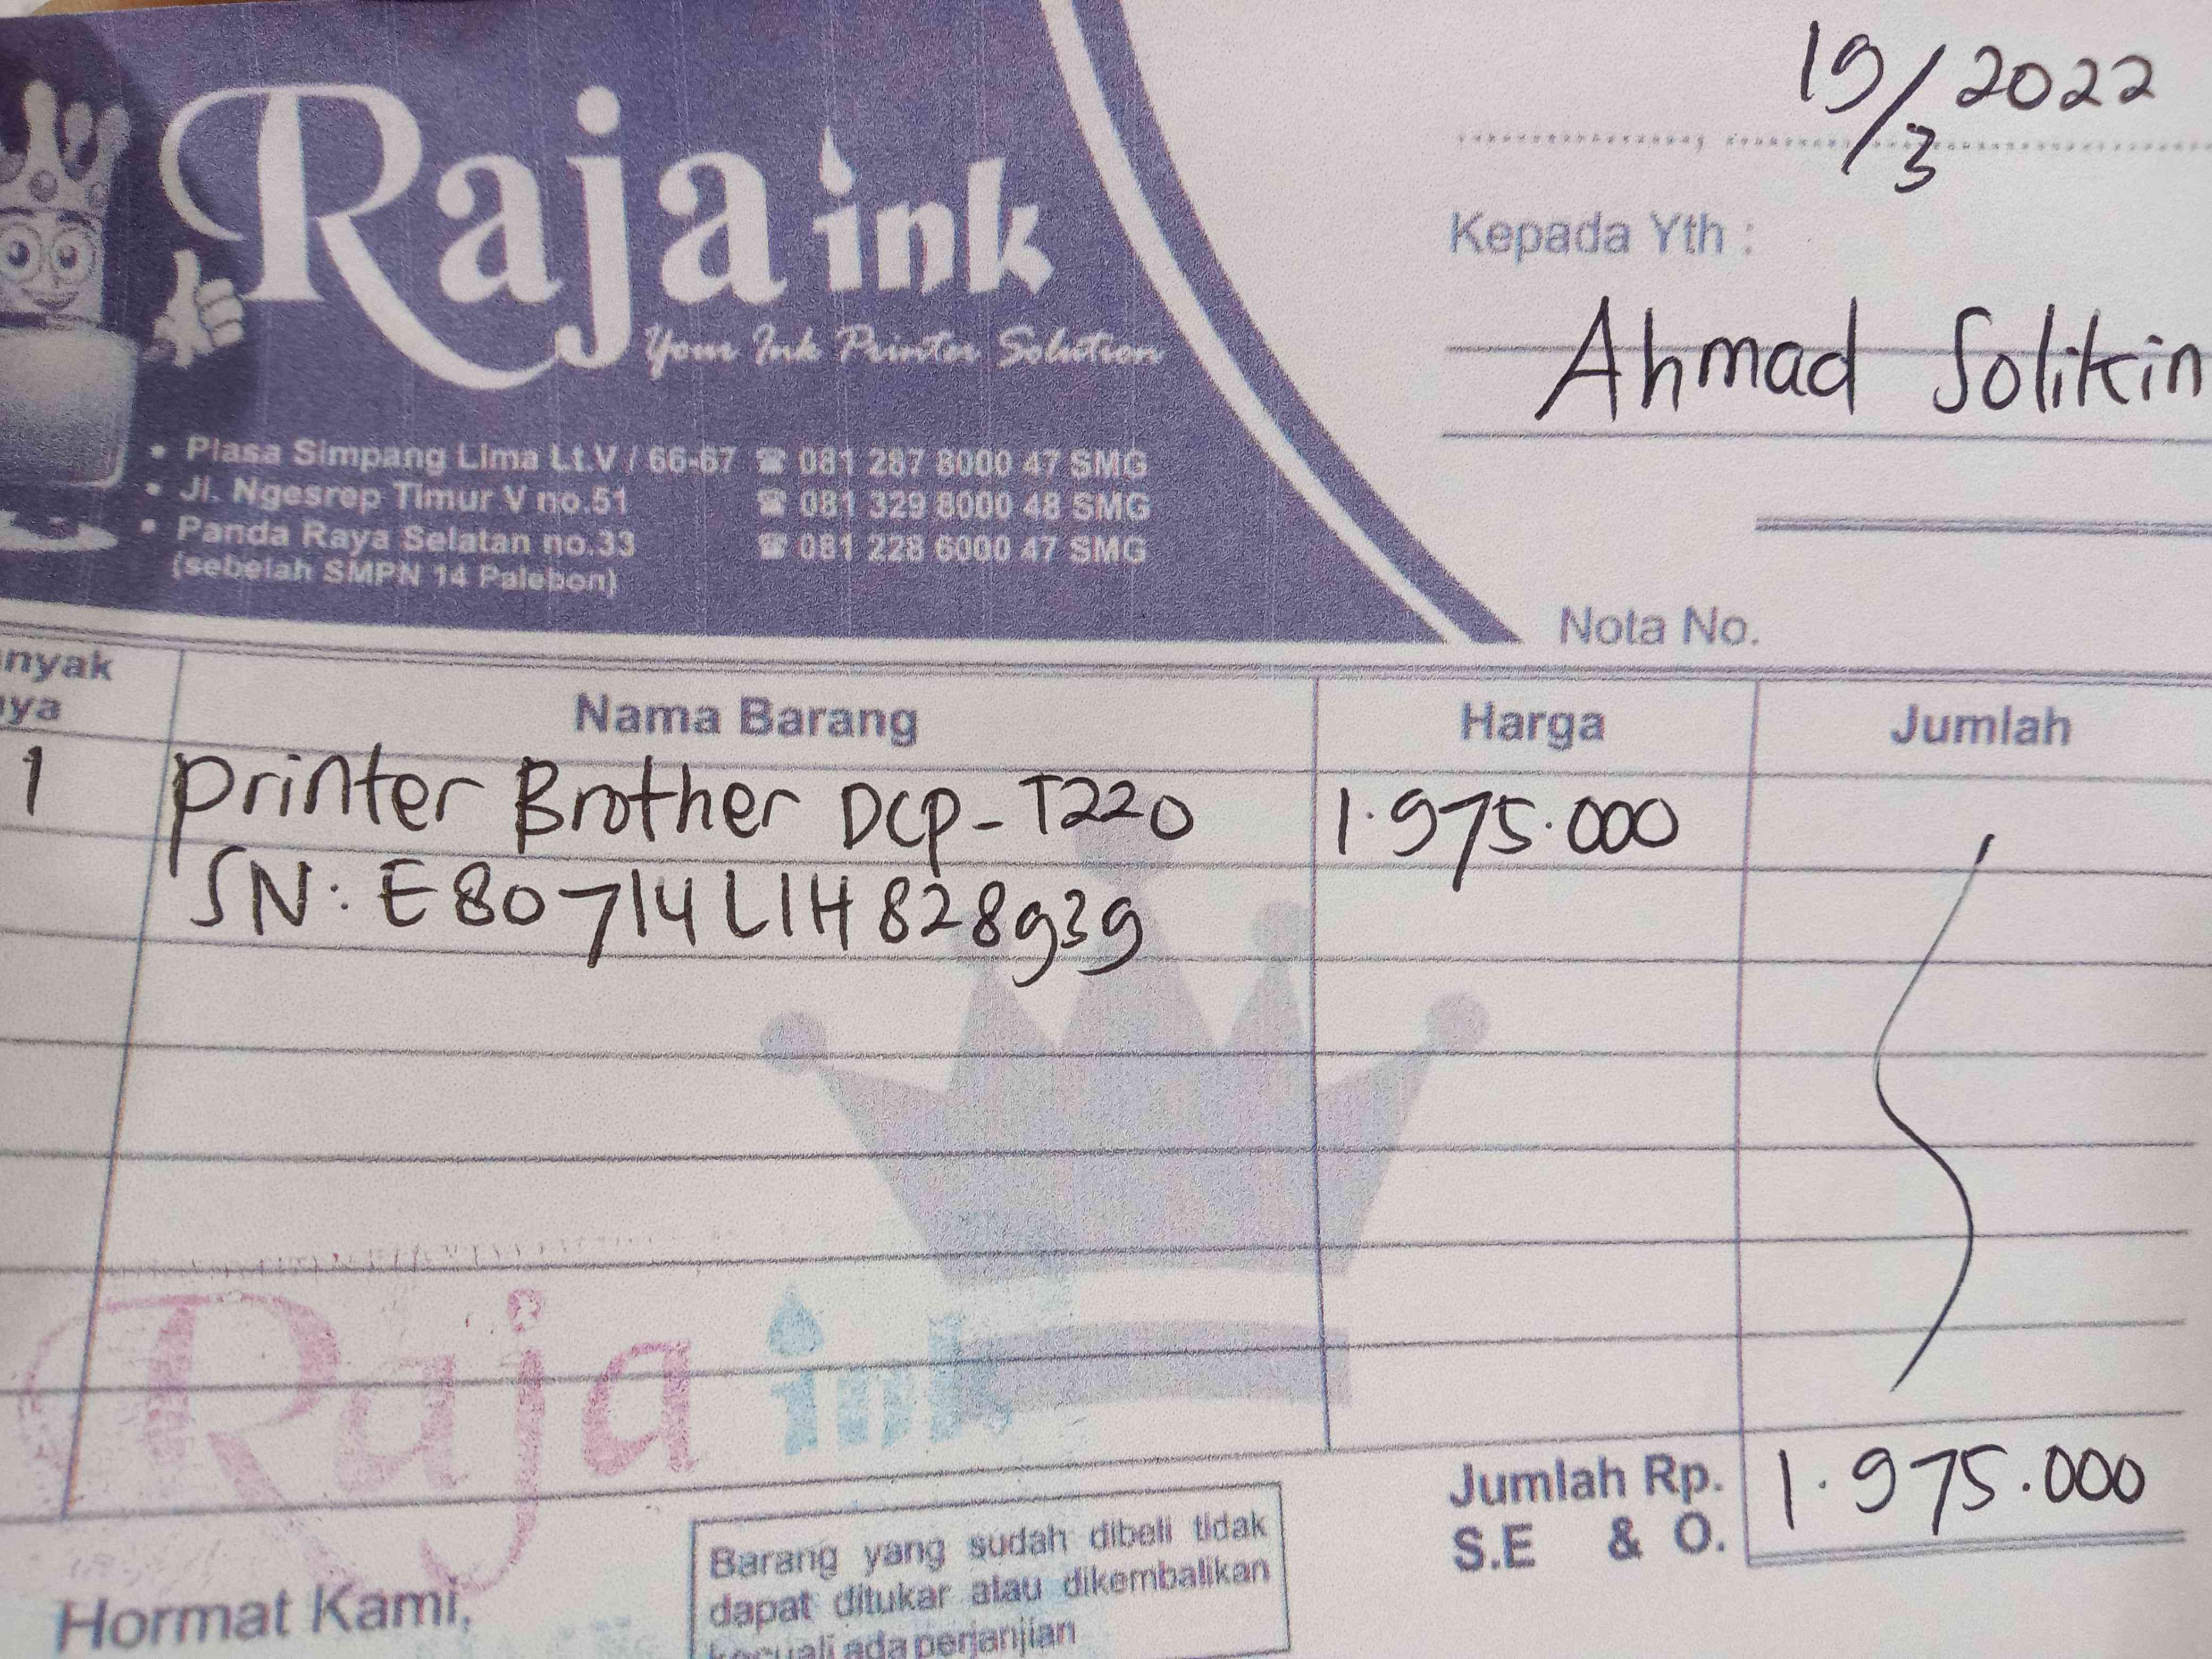 Raja ink
Your Ink Printer Solution
• Plasa Simpang Lima Lt.V / 66-67 ☎ 081 287 8000 47 SMG
• Jl. Ngesrep Timur V no.51 ☎ 081 329 8000 48 SMG
• Panda Raya Selatan no.33 ☎ 081 228 6000 47 SMG
(sebelah SMPN 14 Palebon)
19/3 2022
Kepada Yth :
Ahmad Solikin
Nota No.
anyak
nya
Nama Barang Harga Jumlah
1 printer Brother DCP-T220 1.975.000
SN: E80714L1H828939
Raja ink
Jumlah Rp. 1.975.000
S.E & O.
Hormat Kami,
Barang yang sudah dibeli tidak
dapat ditukar atau dikembalikan
kecuali ada perjanjian